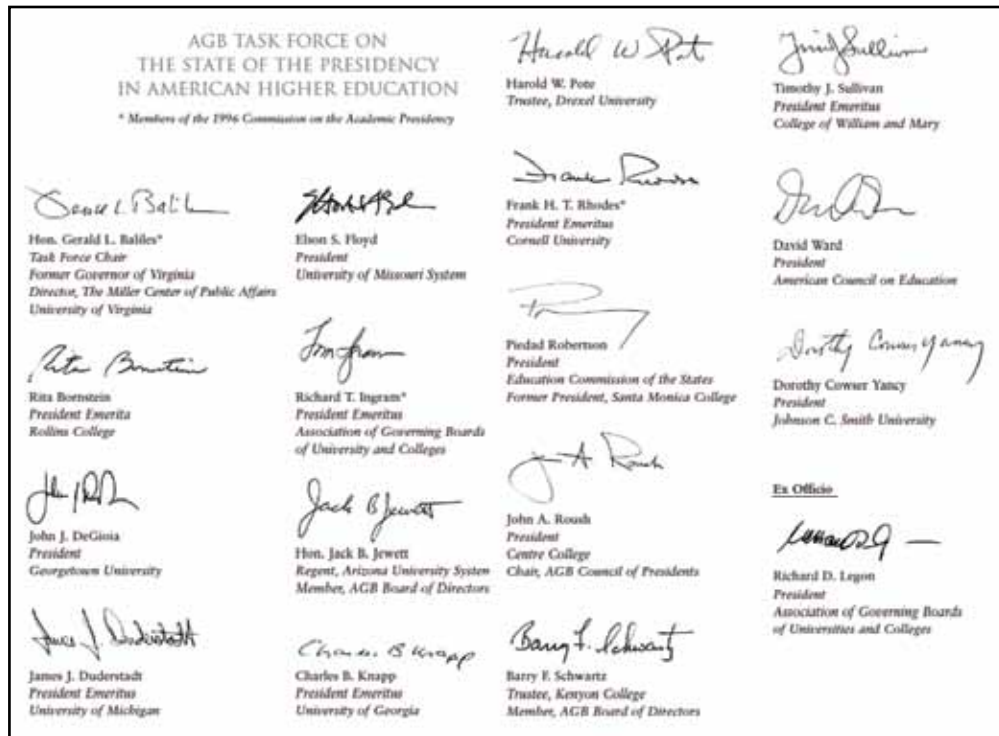 AGB TASK FORCE ON
THE STATE OF THE PRESIDENCY
IN AMERICAN HIGHER EDUCATION
* Members of the 1996 Commission on the Academic Presidency
Hon. Gerald L. Baliles*
Task Force Chair
Former Governor of Virginia
Director, The Miller Center of Public Affairs
University of Virginia
Rita Bornstein
Rita Bornstein
President Emerita
Rollins College
John J. DeGioia
President
Georgetown University
James J. Duderstadt
James J. Duderstadt
President Emeritus
University of Michigan
Elson S. Floyd
President
University of Missouri System
Richard T. Ingram*
President Emeritus
Association of Governing Boards
of University and Colleges
Jack B Jewett
Hon. Jack B. Jewett
Regent, Arizona University System
Member, AGB Board of Directors
Charles B Knapp
Charles B. Knapp
President Emeritus
University of Georgia
Harold W Pote
Harold W. Pote
Trustee, Drexel University
Frank H. T. Rhodes*
President Emeritus
Cornell University
Piedad Robertson
President
Education Commission of the States
Former President, Santa Monica College
John A. Roush
President
Centre College
Chair, AGB Council of Presidents
Barry F. Schwartz
Barry F. Schwartz
Trustee, Kenyon College
Member, AGB Board of Directors
Timothy J. Sullivan
President Emeritus
College of William and Mary
David Ward
President
American Council on Education
Dorothy Cowser Yancy
Dorothy Cowser Yancy
President
Johnson C. Smith University
Ex Officio
Richard D. Legon
President
Association of Governing Boards
of Universities and Colleges